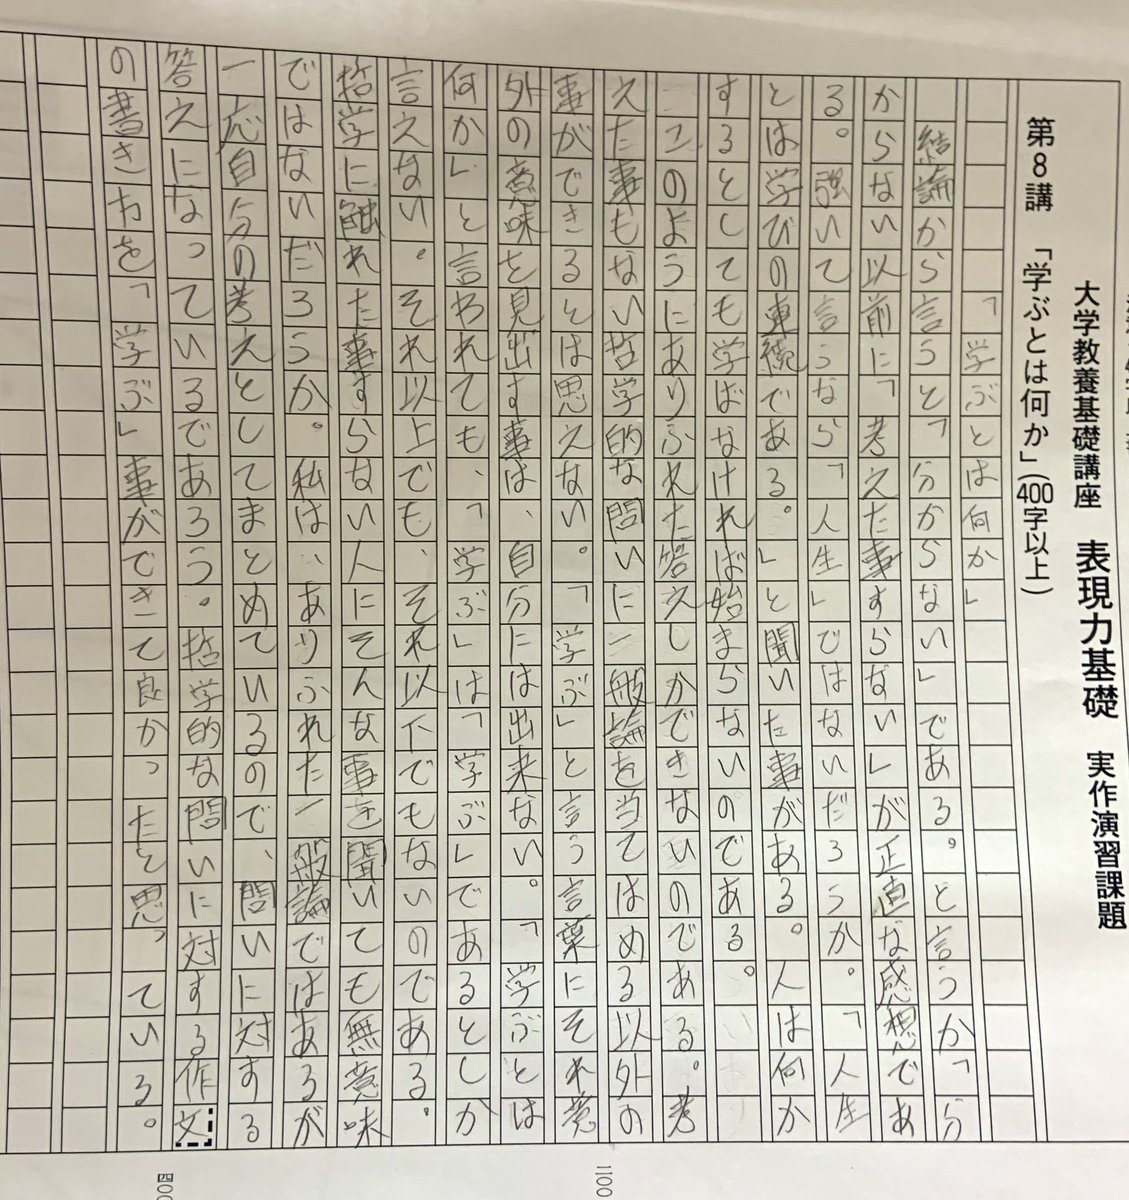 大学教養基礎講座 表現力基礎 実作演習課題
第8講 「学ぶとは何か」(400字以上)
「学ぶとは何か」
結論から言うと「分からない」である。と言うか「分
からない以前に「考えた事すらない」が正直な感想であ
る。強いて言うなら「人生」ではないだろうか。「人生
とは学びの連続である。」と聞いた事がある。人は何か
するとしても学ばなければ始まらないのである。
このようにありふれた答えしかできないのである。考
えた事もない哲学的な問いに一般論を当てはめる以外の
事ができるとは思えない。「学ぶ」と言う言葉にそれ意
外の意味を見出す事は、自分には出来ない。「学ぶとは
何か」と言われても、「学ぶ」は「学ぶ」であるとしか
言えない。それ以上でも、それ以下でもないのである。
哲学に触れた事すらない人にそんな事を聞いても無意味
ではないだろうか。私は、ありふれた一般論ではあるが
一応自分の考えとしてまとめているので、問いに対する
答えになっているであろう。哲学的な問いに対する作文
の書き方を「学ぶ」事ができて良かったと思っている。
二00
四00